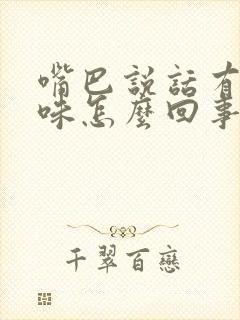 嘴巴說話有
味怎麼回事
千翠百戀